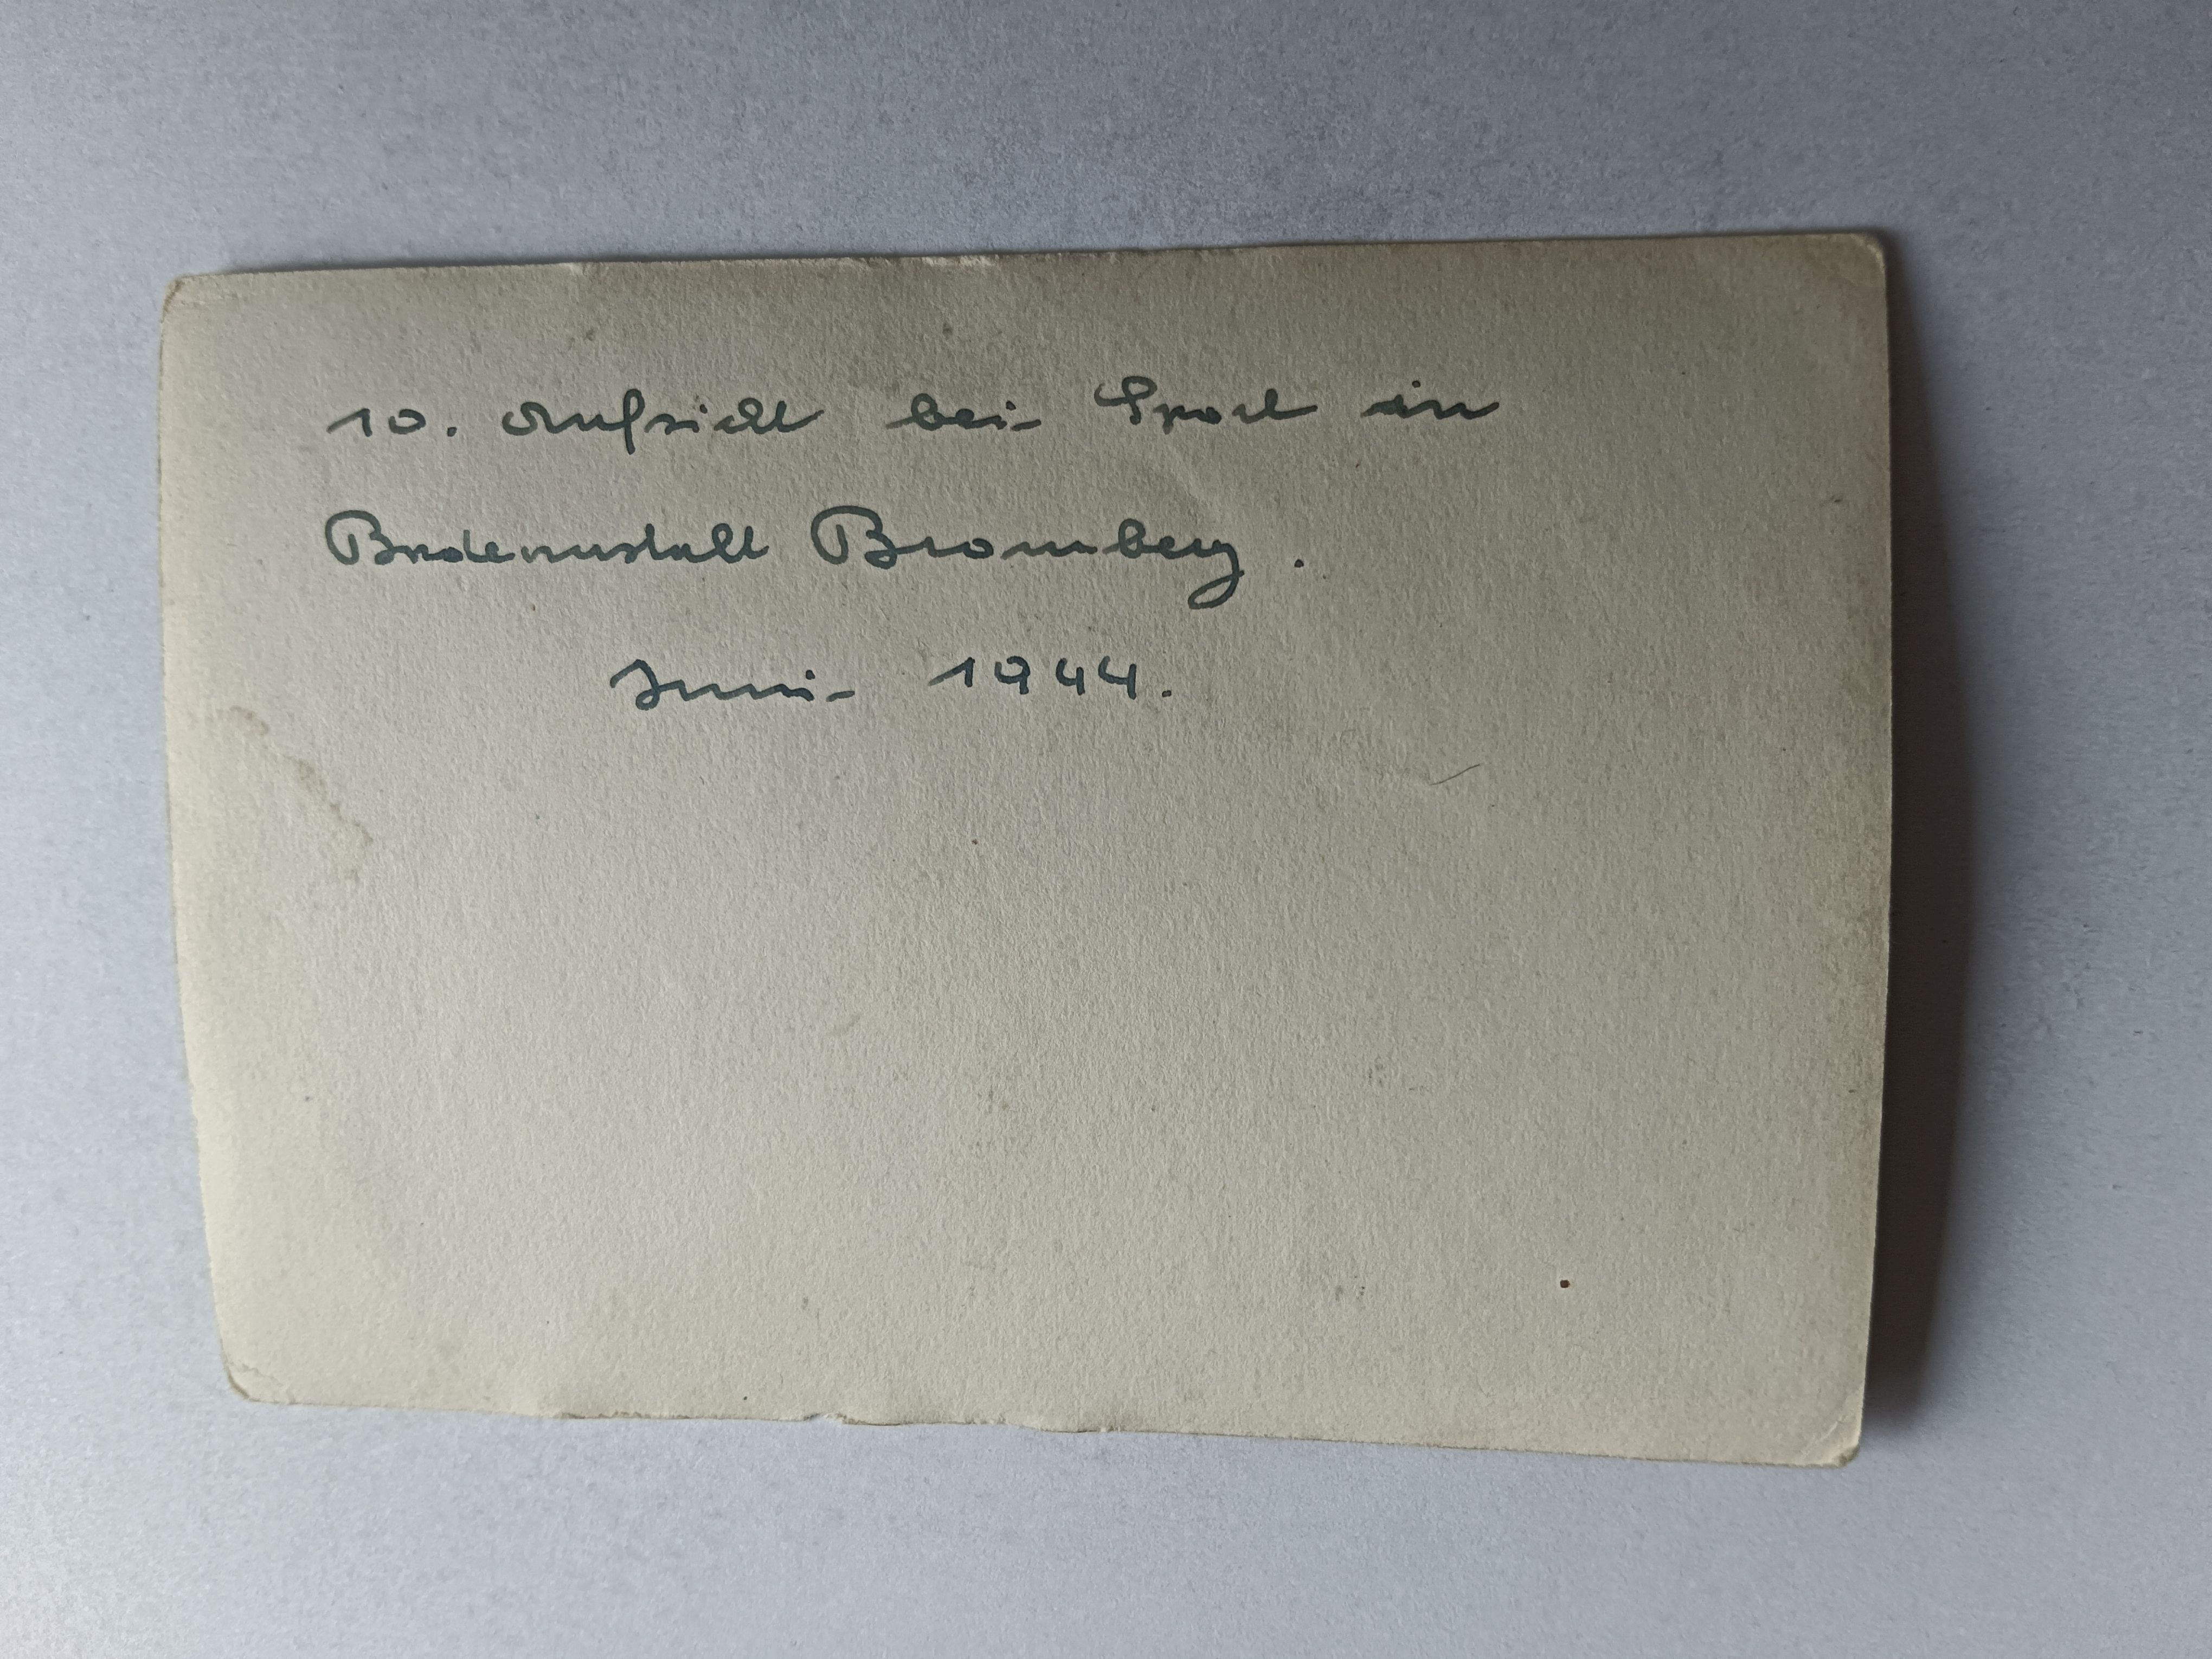 10. Aufsicht bei Sport in
Badeanstalt Bromberg.
Juni 1944.